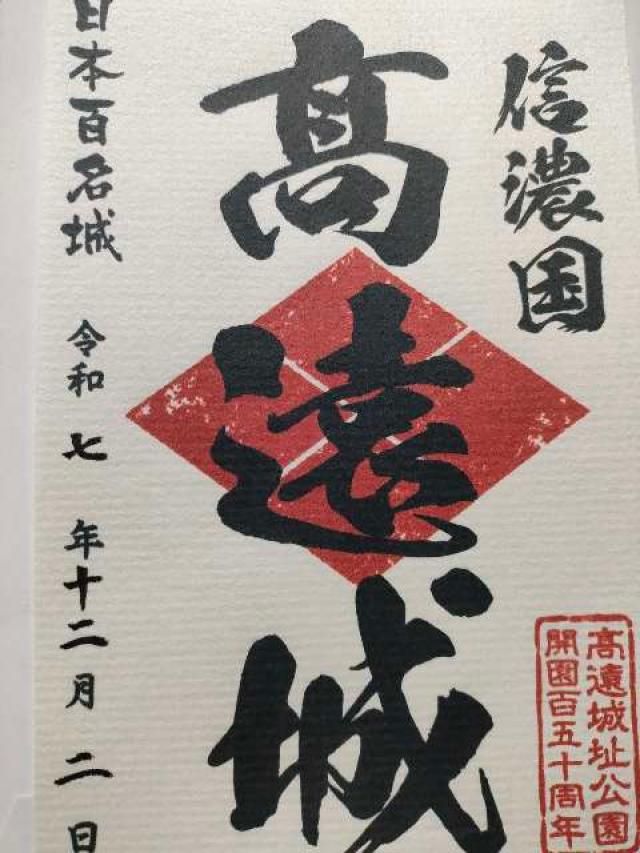 信濃国
髙遠城
日本百名城
令和七年十二月二日
髙遠城址公園
開園百五十周年